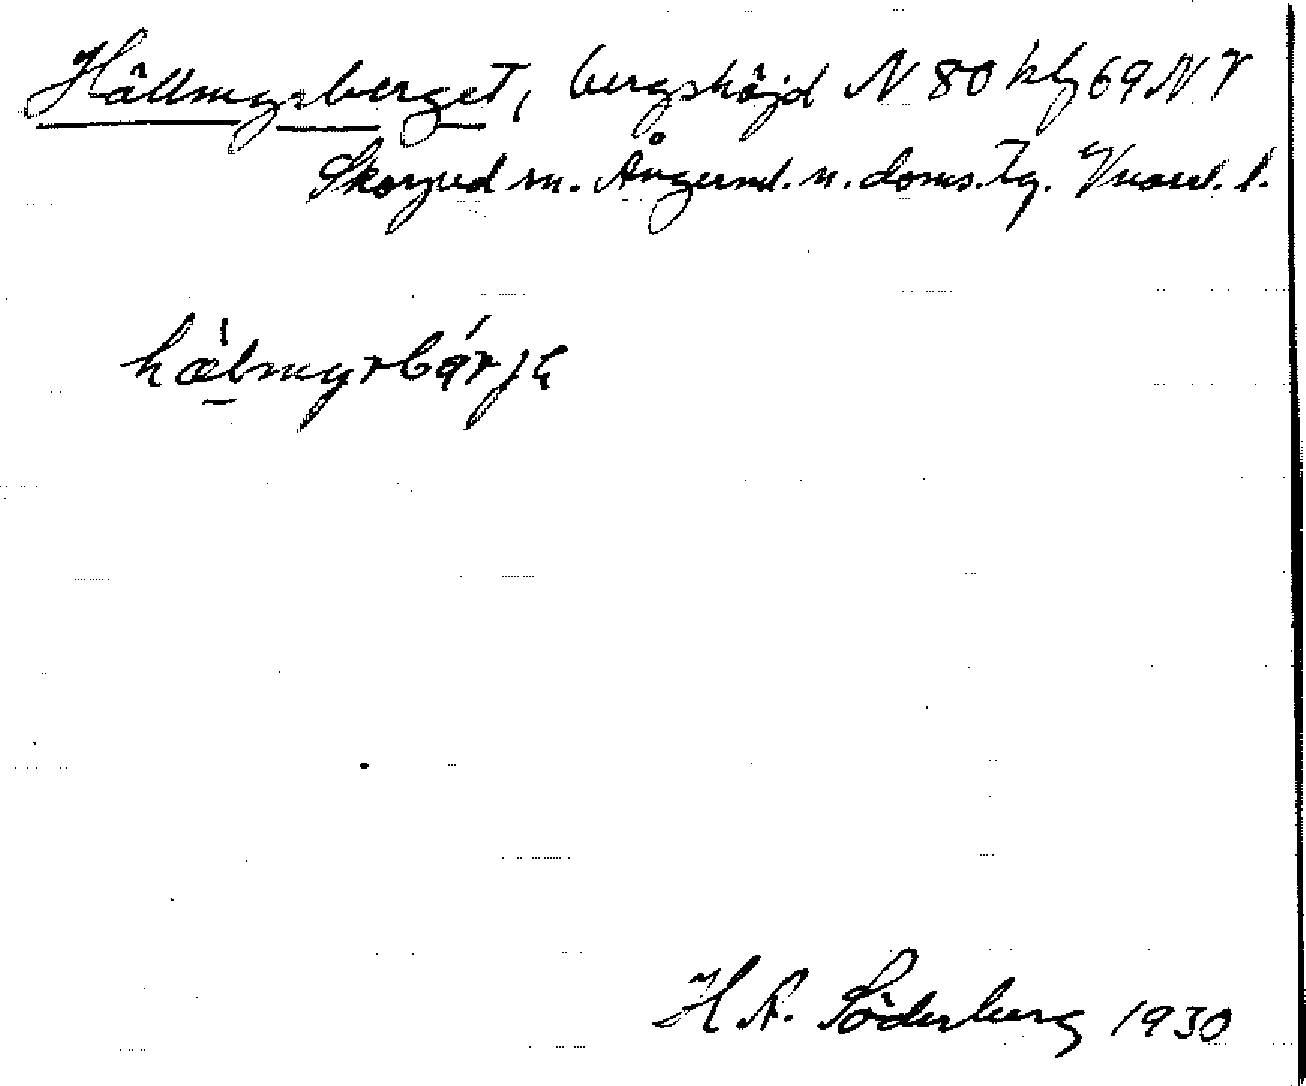 Hällmyrsberget, bergshöjd N 80 kbg 69 NV
Skorped sn. Ångerml. n. doms.
hälmyrbärje
H A. Söderberg 1930